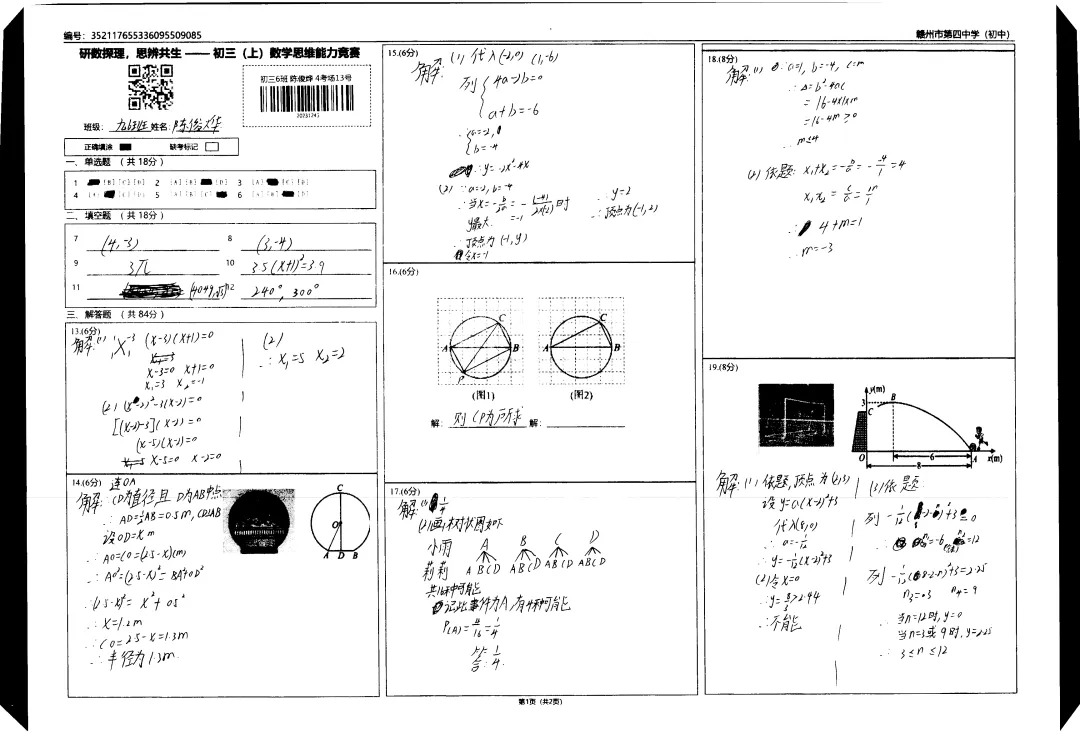 编号：352117655336095509085
赣州市第四中学（初中）
研数探理，思辨共生 —— 初三（上）数学思维能力竞赛
初三6班 陈俊烨 4考场13号
20231245
班级： 姓名：陈俊烨
正确填涂 缺考标记
一、单选题 （共18分）
1 [B] [C] [D] 2 [A] [B] [D] 3 [A] [C] [D]
4 [A] [C] [D] 5 [A] [B] [C] 6 [A] [B] [D]
二、填空题 （共18分）
7 (4,-3) 8 (3,-4)
9 3π 10 35(x+1)²=39
11 (4049,√3) 12 240°, 300°
三、解答题 （共84分）
13.(6分)
解：(1) (x-3)(x+1)=0
x-3=0 x+1=0
x₁=3 x₂=-1
(2) (x-2)²-3(x-2)=0
[(x-2)-3](x-2)=0
(x-5)(x-2)=0
x-5=0 x-2=0
(2)
∴x₁=5 x₂=2
14.(6分) 连OA
解：CD为直径且D为AB中点
∴AD=½AB=0.5m, CD⊥AB
设OD=xm
∴AO=CO=(2.5-x)(m)
∴AO²=(2.5-x)²=BA²+OD²
∴(2.5-x)²=x²+0.5²
∴x=1.2m
∴CO=2.5-x=1.3m
∴半径为1.3m
C
O
A D B
15.(6分)
解：(1) 代入(-2,0) (1,-6)
列{4a-2b=0
a+b=-6
∴{a=-2,
b=-4
∴y=-2x²-4x
(2) ∵a=-2, b=-4
∴当x=-b/2a=-(-4)/2×(-2)时
=-1
y最大
∴顶点为(-1,y)
令x=-1
∴y=2
∴顶点为(-1,2)
16.(6分)
C
A B
P
(图1)
C
A B
(图2)
解：则CP为所求 解：
17.(6分)
解：(1) ¼
(2)画树状图如下
小雨 A B C D
莉莉 ABCD ABCD ABCD ABCD
共16种可能
记此事件为A，有4种可能
P(A)=4/16=¼
答：¼.
18.(8分)
解：(1) ∵a=1, b=-4, c=m
∴Δ=b²-4ac
=16-4×1×m
=16-4m≥0
∴m≤4
(2) 依题：x₁+x₂=-b/a=-(-4)/1=4
x₁x₂=c/a=m/1
∴4+m=1
∴m=-3
19.(8分)
y(m)
3 B
C
O 6 A x(m)
8
解：(1) 依题，顶点为(2,3)
设y=a(x-2)²+3
代入(8,0)
∴a=-1/12
∴y=-1/12(x-2)²+3
(2)令x=0
∴y=8/3>2.44
∴不能
(3)依题
n₃=3 n₄=9
当n=12时，y=0
当n=3或9时，y=2.25
∴3≤n≤12
第1页（共2页）